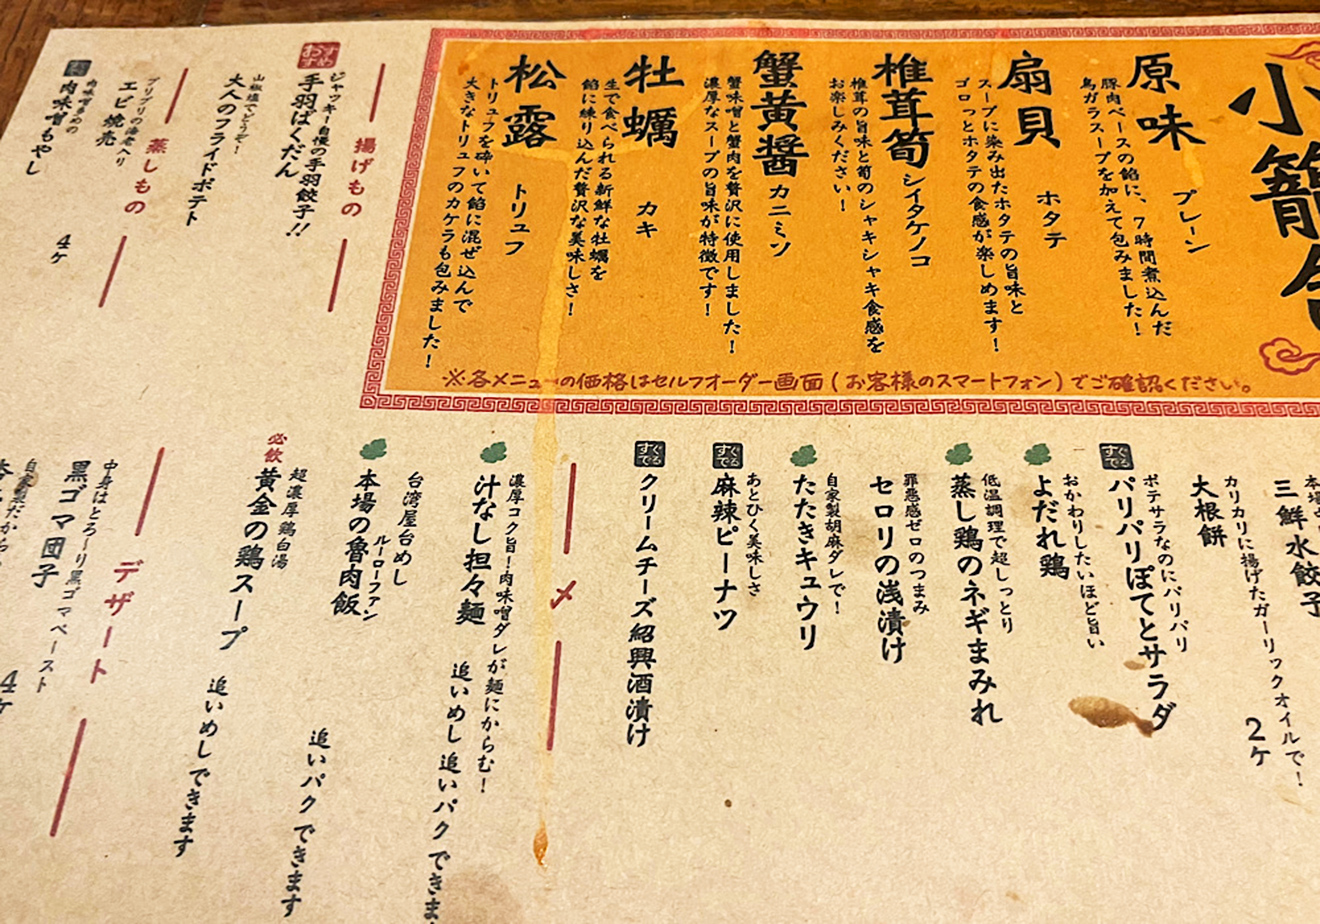 小籠包
原味 プレーン
豚肉ベースの餡に、7時間煮込んだ
鳥ガラスープを加えて包みました！
扇貝 ホタテ
スープに染み出たホタテの旨味と
ゴロっとホタテの食感が楽しめます！
椎茸筍 シイタケノコ
椎茸の旨味と筍のシャキシャキ食感を
お楽しみください！
蟹黄醤 カニミソ
蟹味噌と蟹肉を贅沢に使用しました！
濃厚なスープの旨味が特徴です！
牡蠣 カキ
生で食べられる新鮮な牡蠣を
餡に練り込んだ贅沢な美味しさ！
松露 トリュフ
トリュフを砕いて餡に混ぜ込んで
大きなトリュフのカケラも包みました！
※各メニューの価格はセルフオーダー画面(お客様のスマートフォン)でご確認ください。
揚げもの
おすすめ
ジャッキー自慢の手羽餃子！！
手羽ばくだん
山椒塩でどうぞ！
大人のフライドポテト
蒸しもの
プリプリの海老入り
エビ焼売
4ケ
肉味噌もやし
三鮮水餃子
カリカリに揚げたガーリックオイルで！
大根餅
2ケ
すぐでる
ポテサラなのにパリパリ
パリパリぽてとサラダ
おかわりしたいほど旨い
よだれ鶏
低温調理で超しっとり
蒸し鶏のネギまみれ
罪悪感ゼロのつまみ
セロリの浅漬け
自家製胡麻ダレで！
たたきキュウリ
すぐでる
あとひく美味しさ
麻辣ピーナツ
すぐでる
クリームチーズ紹興酒漬け
〆
濃厚コク旨！肉味噌ダレが麺にからむ！
汁なし担々麺
追いめし 追いパクできま
台湾屋台めし
本場の魯肉飯
ルーローファン
追いパクできます
必飲
超濃厚鶏白湯
黄金の鶏スープ
追いめしできます
デザート
中身はとろ〜り黒ゴマペースト
黒ゴマ団子
4ケ